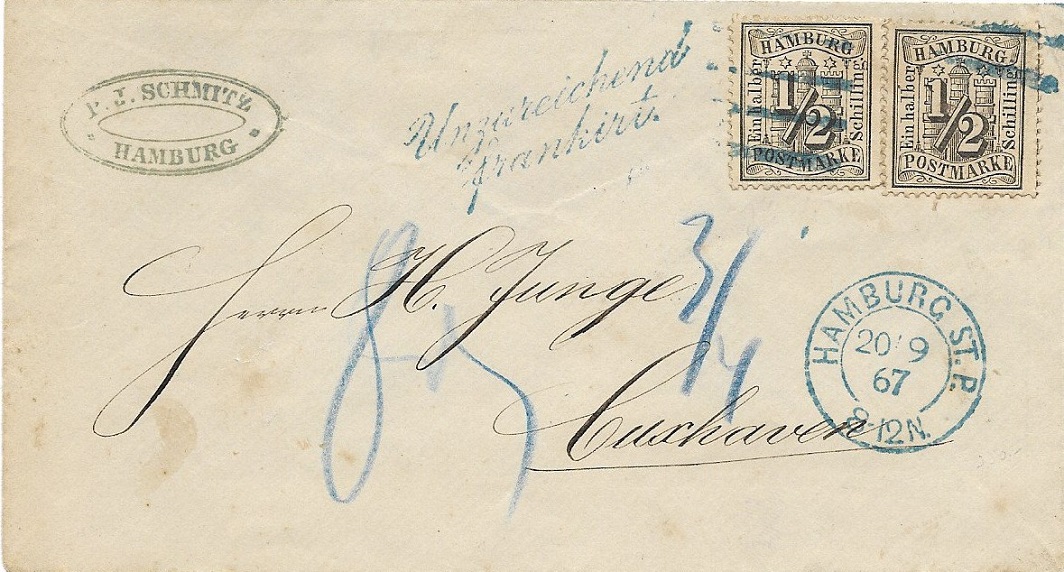 P. I. SCHMITZ
HAMBURG
Unzureichend
frankirt.
HAMBURG
Ein halber
1/2
Schilling
POSTMARKE
HAMBURG
Ein halber
1/2
Schilling
POSTMARKE
Herrn H. Junge
3/4
Cuxhaven
HAMBURG ST. P.
20/9
67
8-12N.